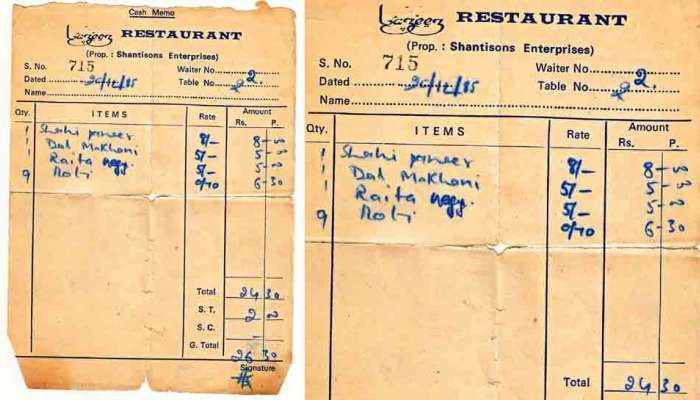 Cash Memo
Lazeez RESTAURANT
(Prop. : Shantisons Enterprises)
S. No. 715 Waiter No. 2
Dated 20/12/85 Table No. 2
Name
Qty. ITEMS Rate Amount
Rs. P.
1 Shahi paneer 8/- 8-00
1 Dal Makhani 5/- 5-00
1 Raita 5/- 5-00
9 Roti 0/70 6-30
Total 24 30
S. T. 2 00
S. C. -
G. Total 26 30
Signature
Lazeez RESTAURANT
(Prop. : Shantisons Enterprises)
S. No. 715 Waiter No. 2.
Dated 20/12/85 Table No. 2
Name
Qty. ITEMS Rate Amount
Rs. P.
1 Shahi paneer 8/- 8-00
1 Dal Makhani 5/- 5-00
1 Raita 5/- 5-00
9 Roti 0/70 6-30
Total 24 30